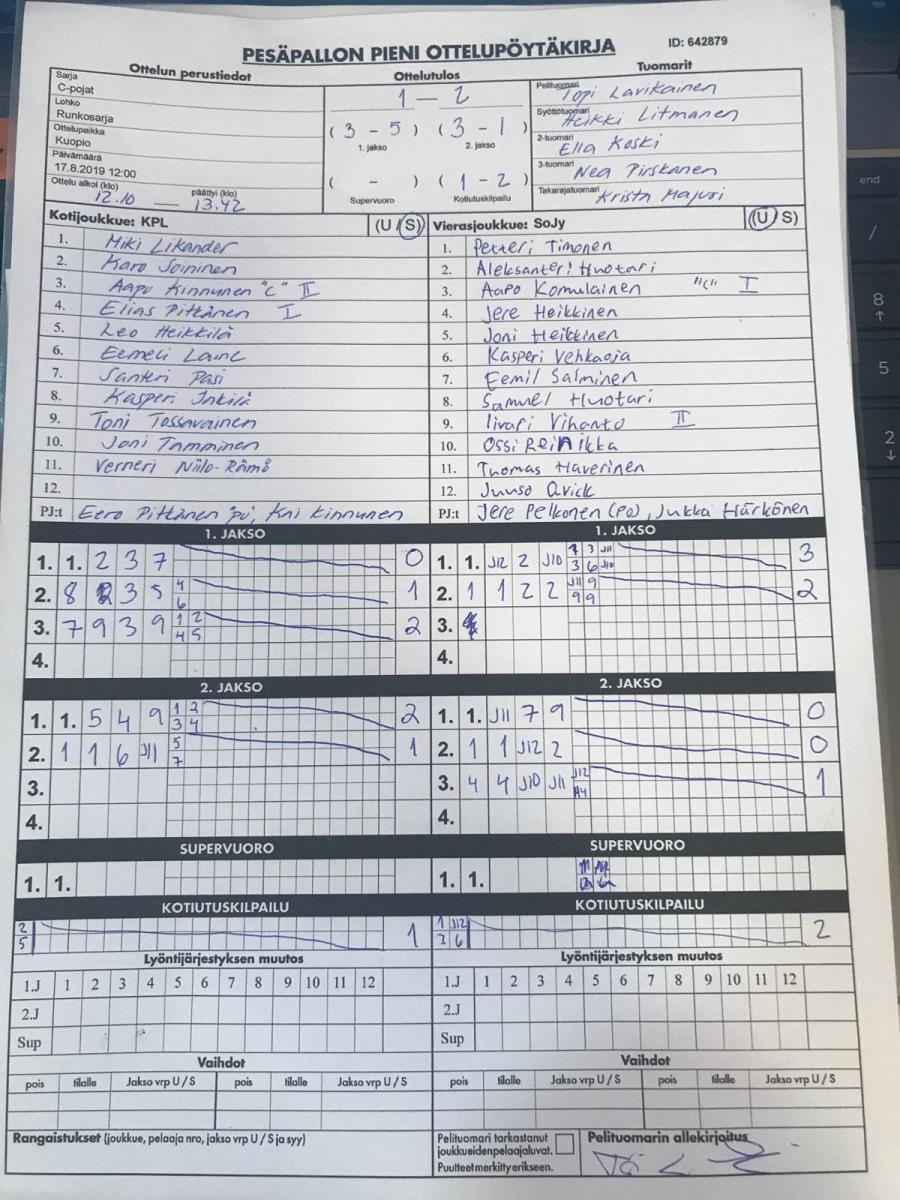 PESÄPALLON PIENI OTTELUPÖYTÄKIRJA
ID: 642879
Ottelun perustiedot
Sarja
C-pojat
Lohko
Runkosarja
Ottelupaikka
Kuopio
Päivämäärä
17.8.2019 12:00
Ottelu alkoi (klo) päättyi (klo)
12.10 — 13.42
Ottelutulos
1 – 2
(3 - 5) (3 - 1)
1. jakso 2. jakso
( - ) (1 - 2)
Supervuoro Kotiutuskilpailu
Tuomarit
Pelituomari Topi Lavikainen
Syöttötuomari Heikki Litmanen
2-tuomari Ella Koski
3-tuomari Nea Pirskanen
Takarajatuomari Krista Majuri
Kotijoukkue: KPL (U/S)
1. Miki Likander
2. Karo Soininen
3. Aapo Kinnunen "C" II
4. Elias Pitkänen I
5. Leo Heikkilä
6. Eemeli Laine
7. Santeri Pasi
8. Kasperi Inkilä
9. Toni Tossavainen
10. Joni Tamminen
11. Verneri Niilo-Rämö
12.
PJ:t Eero Pitkänen "pv", Kai Kinnunen
Vierasjoukkue: SoJy (U/S)
1. Petteri Timonen
2. Aleksanteri Huotari
3. Aapo Komulainen "C" I
4. Jere Heikkinen
5. Joni Heikkinen
6. Kasperi Vehkaoja
7. Eemil Salminen
8. Samuel Huotari
9. Iivari Vihanto II
10. Ossi Reinikka
11. Tuomas Haverinen
12. Juuso Qvick
PJ:t Jere Pelkonen (PV), Jukka Härkönen
1. JAKSO
1. 1. 2 3 7 0
2. 8 3 5 4 6 1
3. 7 9 3 9 1 2 4 5 2
4.
1. JAKSO
1. 1. J12 2 J10 3 J11 3 6 J10 3
2. 1 1 2 2 J11 9 9 9 2
3.
4.
2. JAKSO
1. 1. 5 4 9 1 2 3 4 2
2. 1 1 6 J11 5 7 1
3.
4.
2. JAKSO
1. 1. J11 7 9 0
2. 1 1 J12 2 0
3. 4 4 J10 J11 J12 1
4.
SUPERVUORO
1. 1.
SUPERVUORO
1. 1.
KOTIUTUSKILPAILU
2 5 1
KOTIUTUSKILPAILU
1 J12 3 6 2
Lyöntijärjestyksen muutos
1.J 1 2 3 4 5 6 7 8 9 10 11 12
2.J
Sup
Lyöntijärjestyksen muutos
1.J 1 2 3 4 5 6 7 8 9 10 11 12
2.J
Sup
Vaihdot
pois tilalle Jakso vrp U / S pois tilalle Jakso vrp U / S
Vaihdot
pois tilalle Jakso vrp U / S pois tilalle Jakso vrp U / S
Rangaistukset (joukkue, pelaaja nro, jakso vrp U / S ja syy)
Pelituomari tarkastanut
joukkueidenpelaajaluvat.
Puutteet merkitty erikseen.
Pelituomarin allekirjoitus
end
/
8
↑
5
2
↓